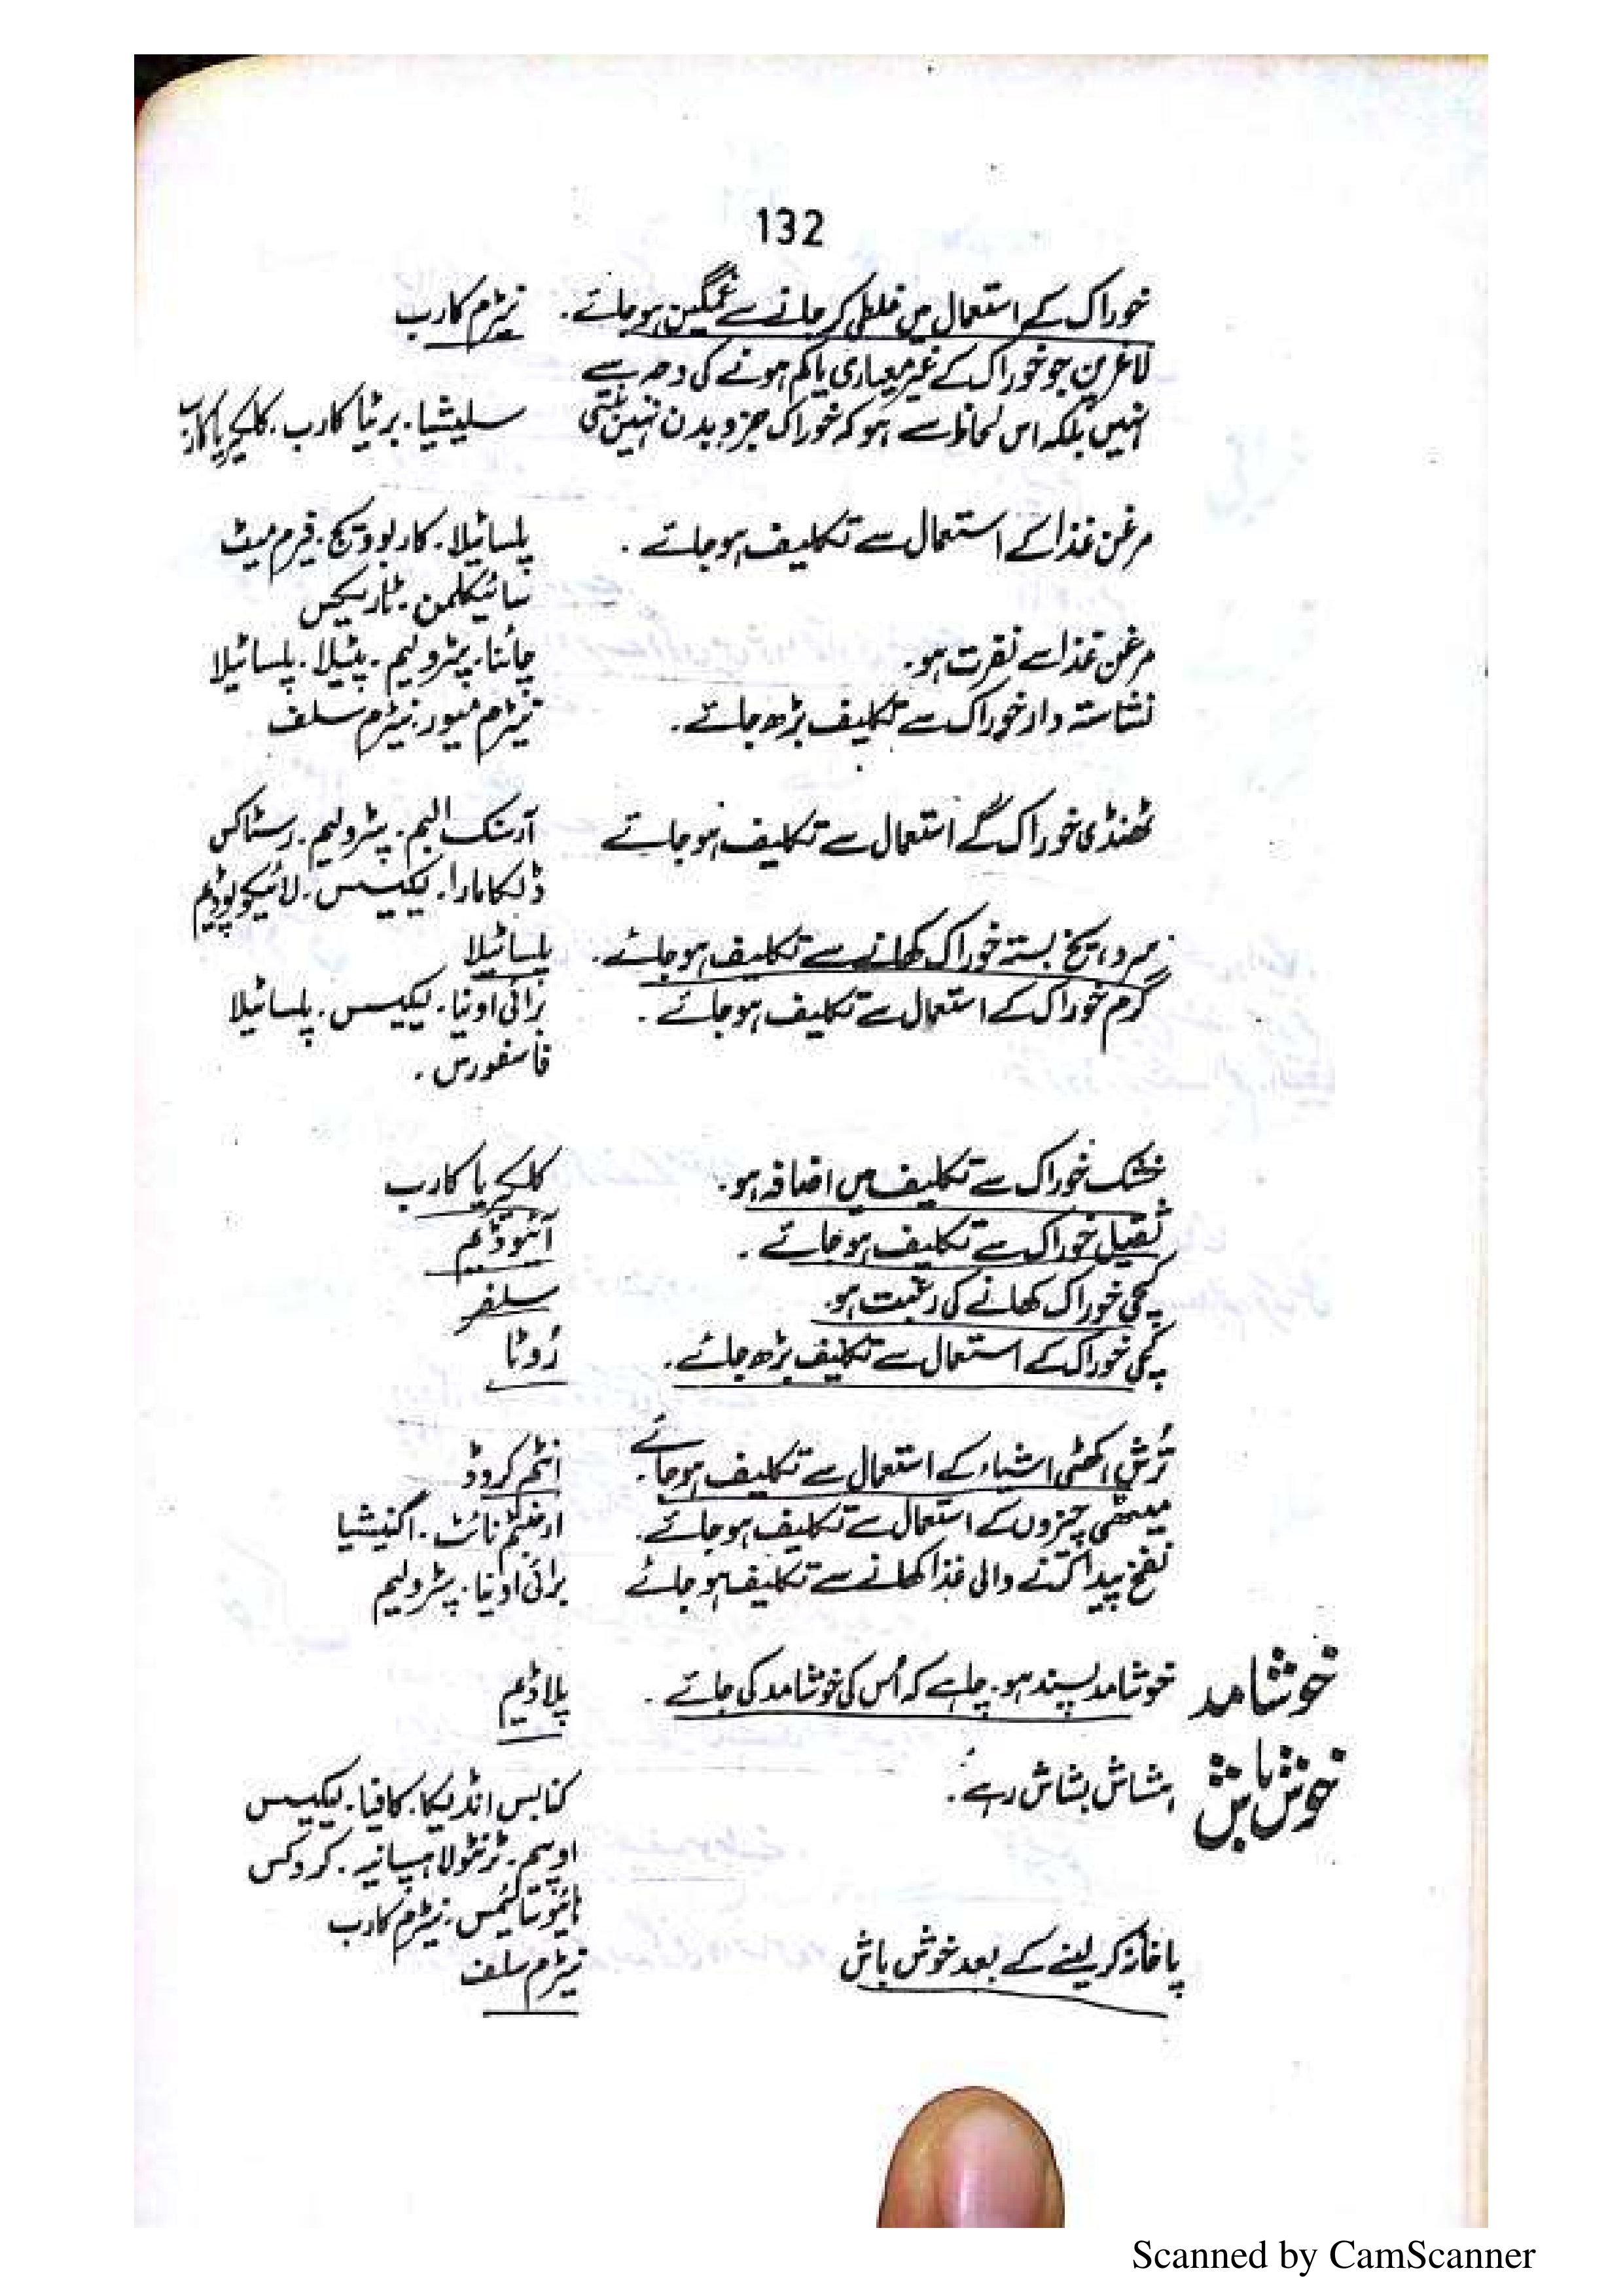 132
خوراک کے استعمال میں غلطی کر جانے سے غمگین ہو جائے۔ نیٹرم کارب
لاغرپن جو خوراک کے غیر معیاری یا کم ہونے کی وجہ سے
نہیں بلکہ اس لحاظ سے ہو کہ خوراک جزو بدن نہیں بنتی سلیشیا۔ برٹیا کارب۔ کلکیریا کارب
مرغن غذا کے استعمال سے تکلیف ہو جائے۔ پلساٹیلا۔ کاربوویج۔ فیرم میٹ
سائیکلمن۔ ٹاریکس
مرغن غذا سے نفرت ہو۔ چائنا۔ پٹرولیم۔ پٹیلا۔ پلساٹیلا
نشاستہ دار خوراک سے تکلیف بڑھ جائے۔ نیٹرم میور۔ نیٹرم سلف
ٹھنڈی خوراک کے استعمال سے تکلیف ہو جائے آرسنک البم۔ پٹرولیم۔ رسٹاکس
ڈلکامارا۔ لیکیسس۔ لائیکوپوڈیم
سرد، یخ بستہ خوراک کھانے سے تکلیف ہو جائے۔ پلساٹیلا
گرم خوراک کے استعمال سے تکلیف ہو جائے۔ برائی اونیا۔ لیکیسس۔ پلساٹیلا
فاسفورس۔
خشک خوراک سے تکلیف میں اضافہ ہو۔ کلکیریا کارب
ثقیل خوراک سے تکلیف ہو جائے۔ آئیوڈیم
کچی خوراک کھانے کی رغبت ہو۔ سلفر
کچی خوراک کے استعمال سے تکلیف بڑھ جائے۔ رُوٹا
تُرش، کھٹی اشیاء کے استعمال سے تکلیف ہو جائے۔ انٹم کروڈ
میٹھی چیزوں کے استعمال سے تکلیف ہو جائے۔ ارجنٹم نائٹ۔ اگنیشیا
نفخ پیدا کرنے والی غذا کھانے سے تکلیف ہو جائے برائی اونیا۔ پٹرولیم
خوشامد خوشامد پسند ہو۔ چاہے کہ اُس کی خوشامد کی جائے۔ پلاڈیم
خوش باش ہشاش بشاش رہے۔ کنابس انڈیکا۔ کافیا۔ لیکیسس
اوپیم۔ ٹرنٹولا ہسپانیہ۔ کروکس
ہائیوسائمس۔ نیٹرم کارب
پاخانہ کر لینے کے بعد خوش باش نیٹرم سلف
Scanned by CamScanner